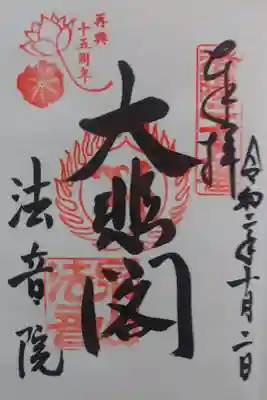 奉拝
令和二年十月二日
大悲閣
法音院
再興
十五周年
法音